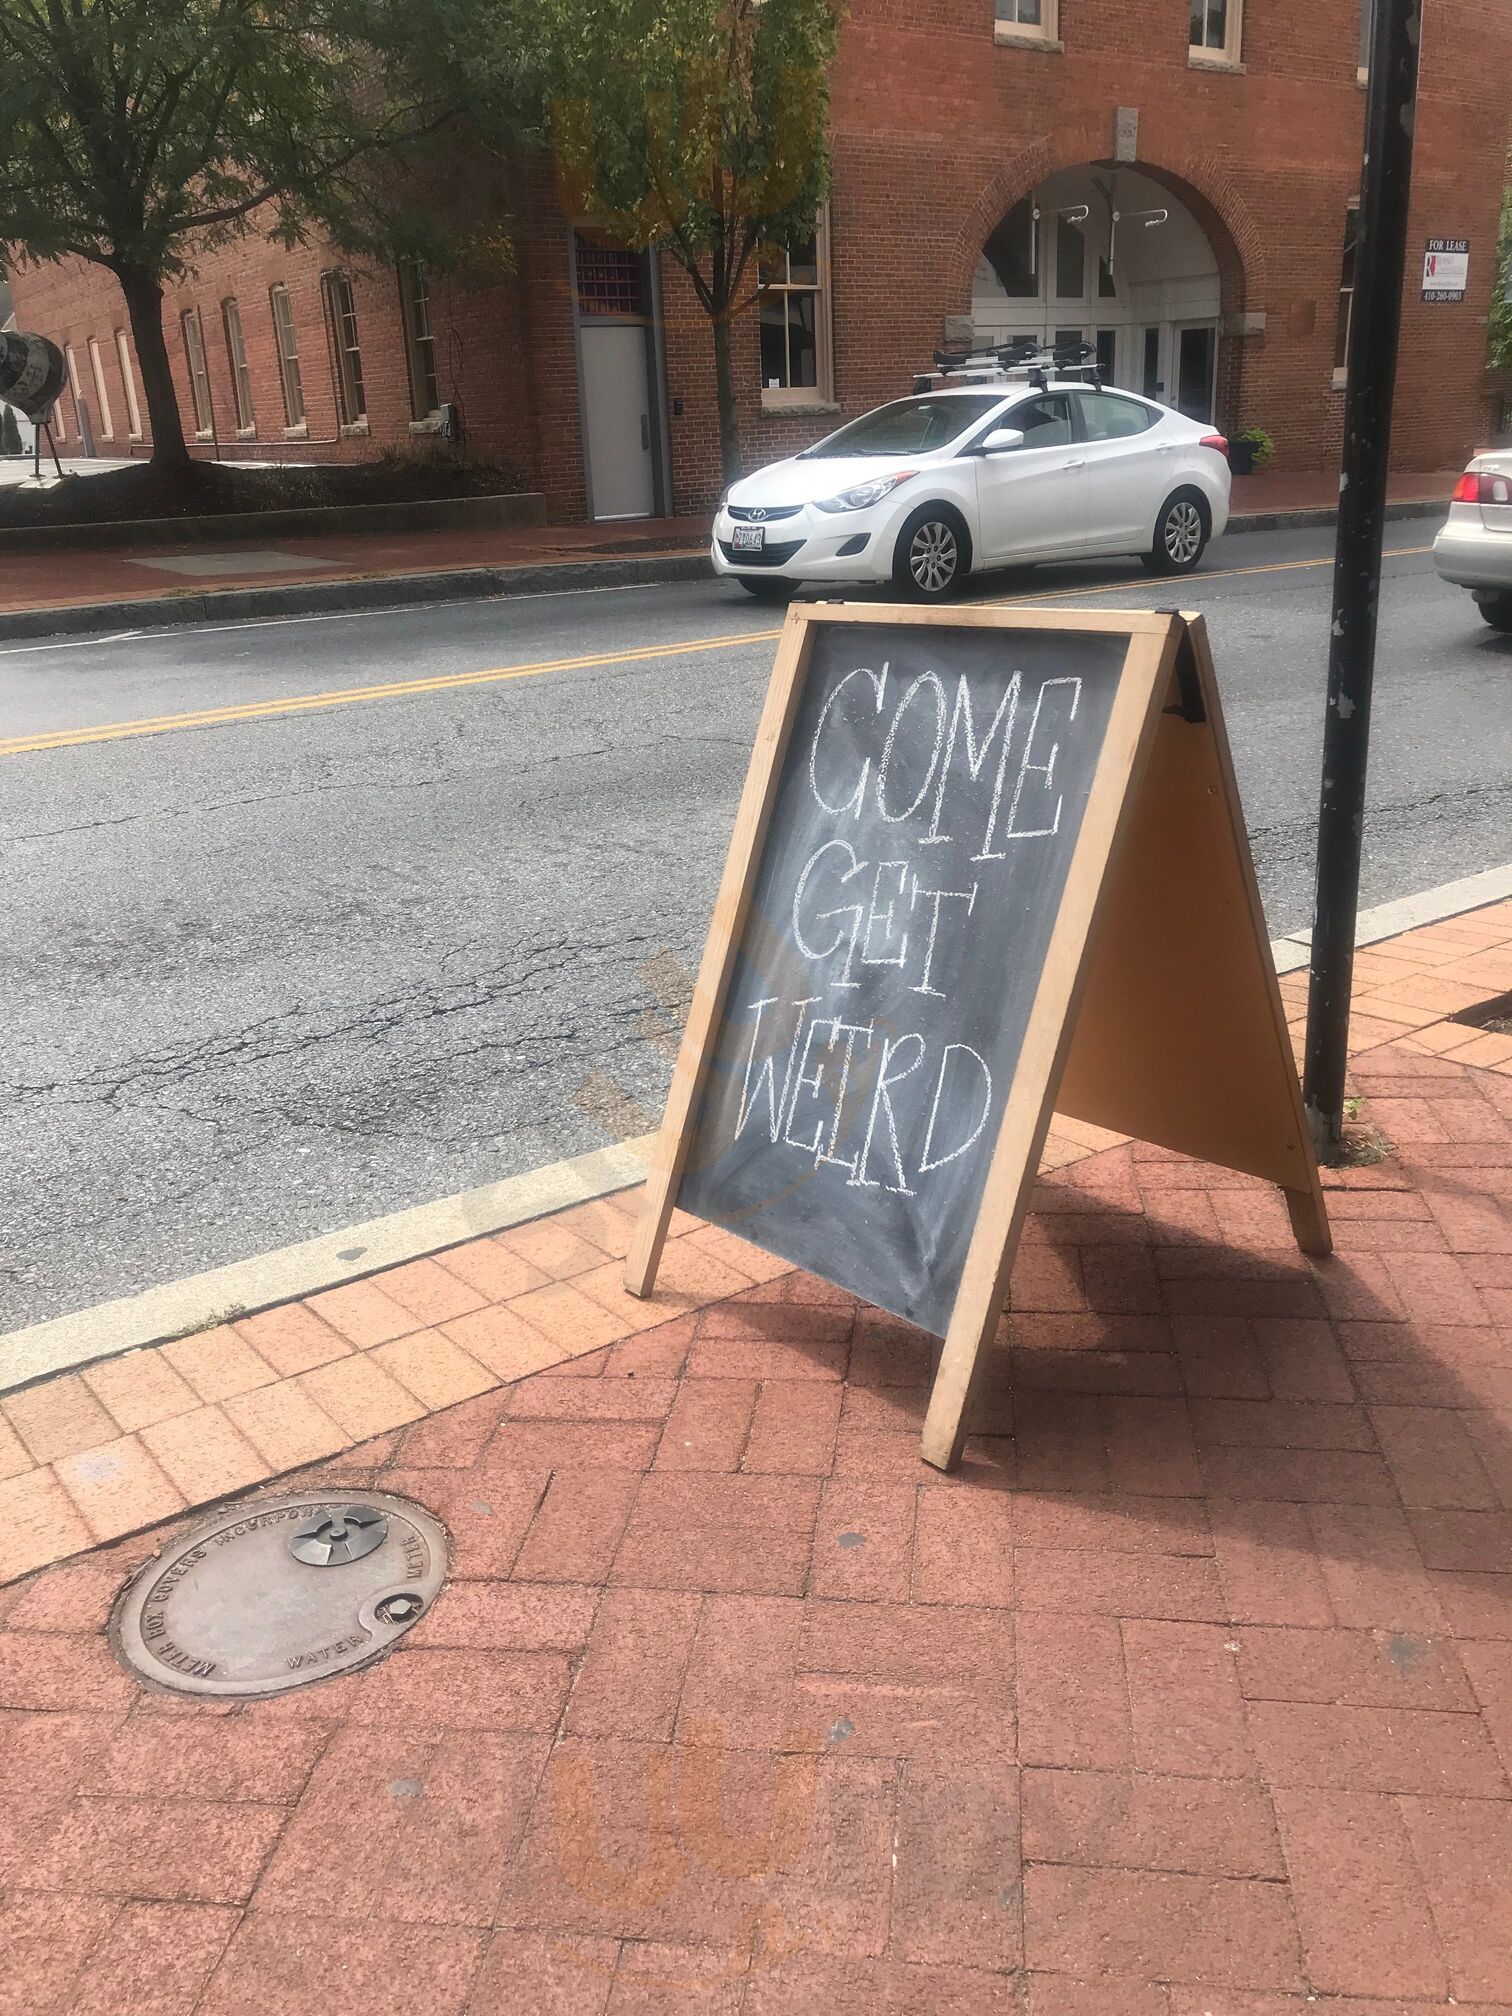 FOR LEASE
410-260-0903
COME
GET
WEIRD
METER BOX COVERS
METER
WATER